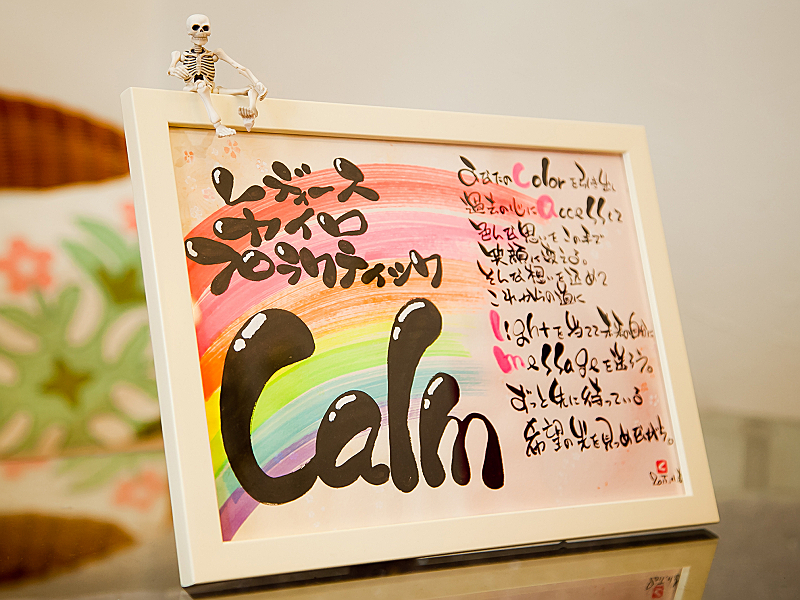 レディース
カイロ
プラクティック
Calm
あなたのcolorを引き出し
過去の心にaccessして
色んな思いをこの手で
笑顔に変える。
そんな想いを込めて
これからの道に
lightを当てて未来の自分に
messageを送ろう。
ずっと先に待っている
希望の光を見つめながら。